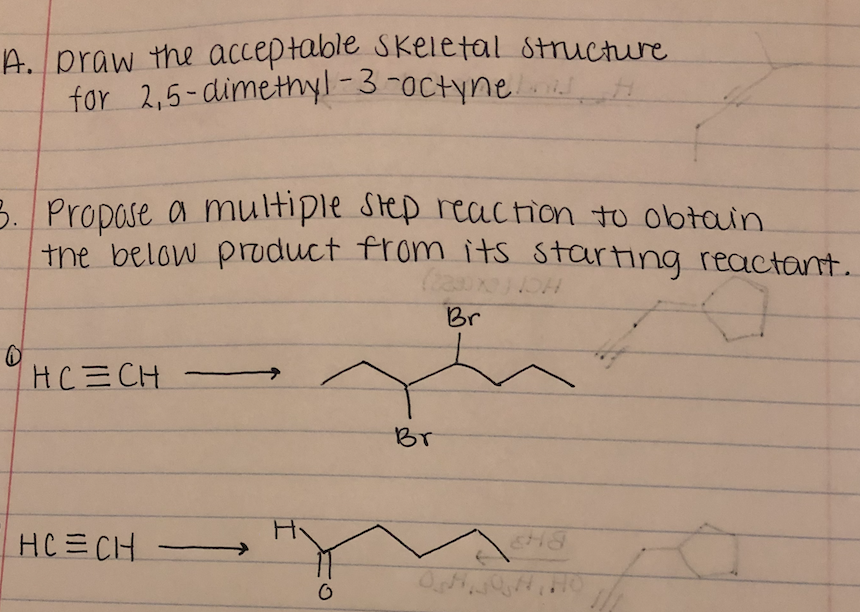 A. Draw the acceptable skeletal structure
for 2,5-dimethyl-3-octyne
B. Propose a multiple step reaction to obtain
the below product from its starting reactant.
Br
① HC≡CH
Br
HC≡CH H
O